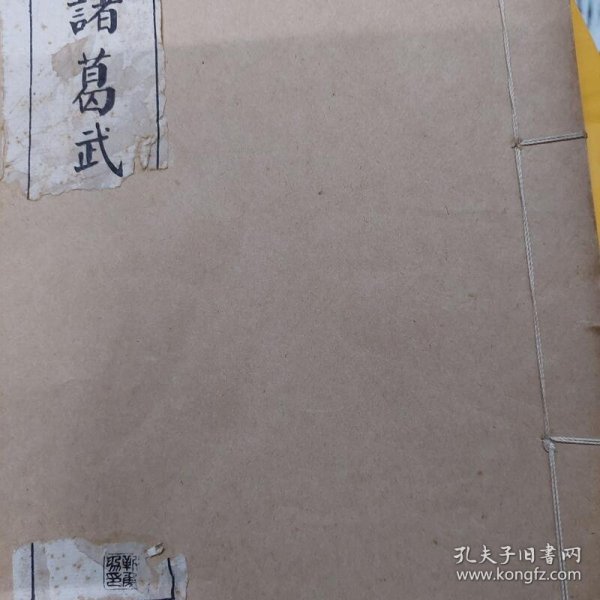 諸葛武
孔夫子旧书网
www.kongfz.com